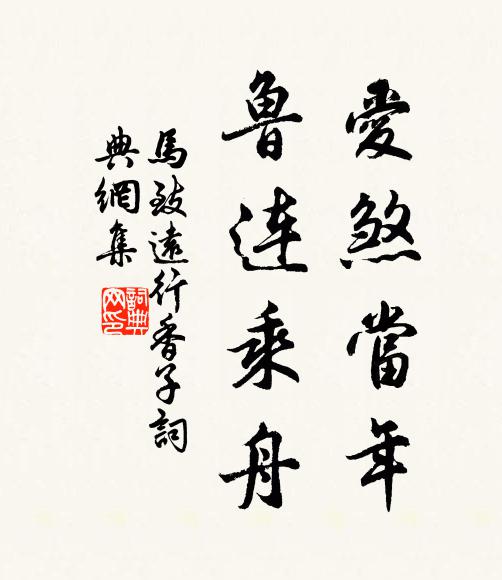 愛煞當年
魯連乘舟
馬致遠行香子詞
典網集
詞典
网印